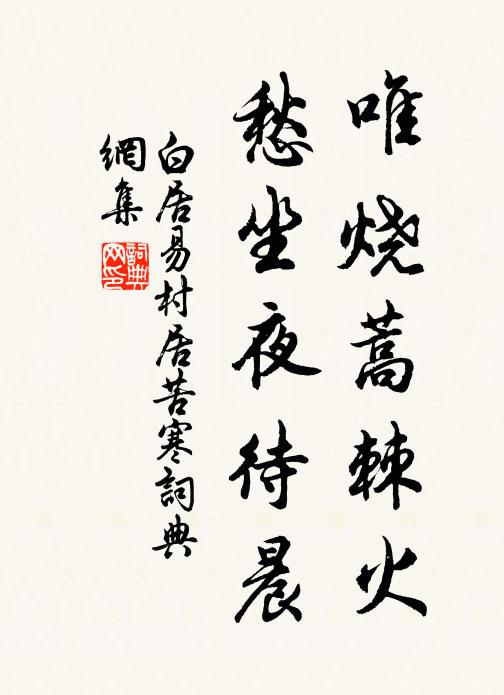 唯烧蒿棘火
愁坐夜待晨
白居易村居苦寒詞典
網集
詞典
网印